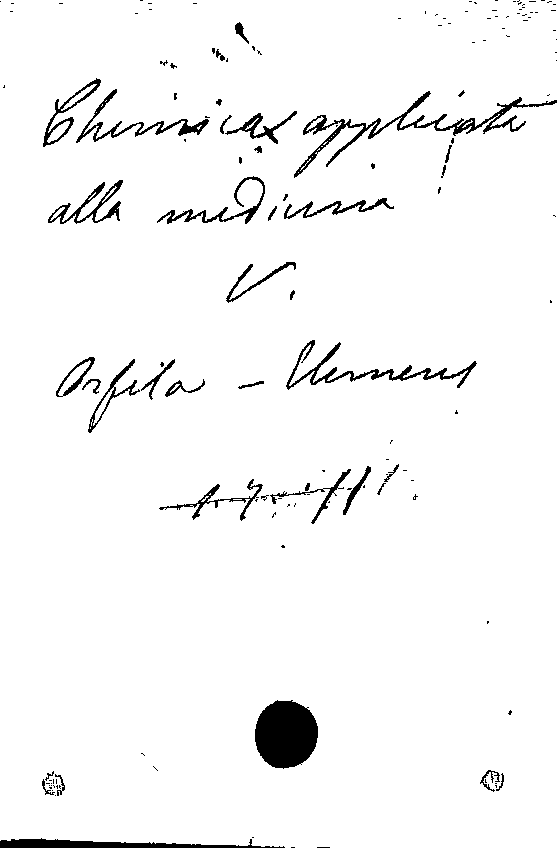 Chimica applicata
alla medicina
V.
Orfila - Elemens